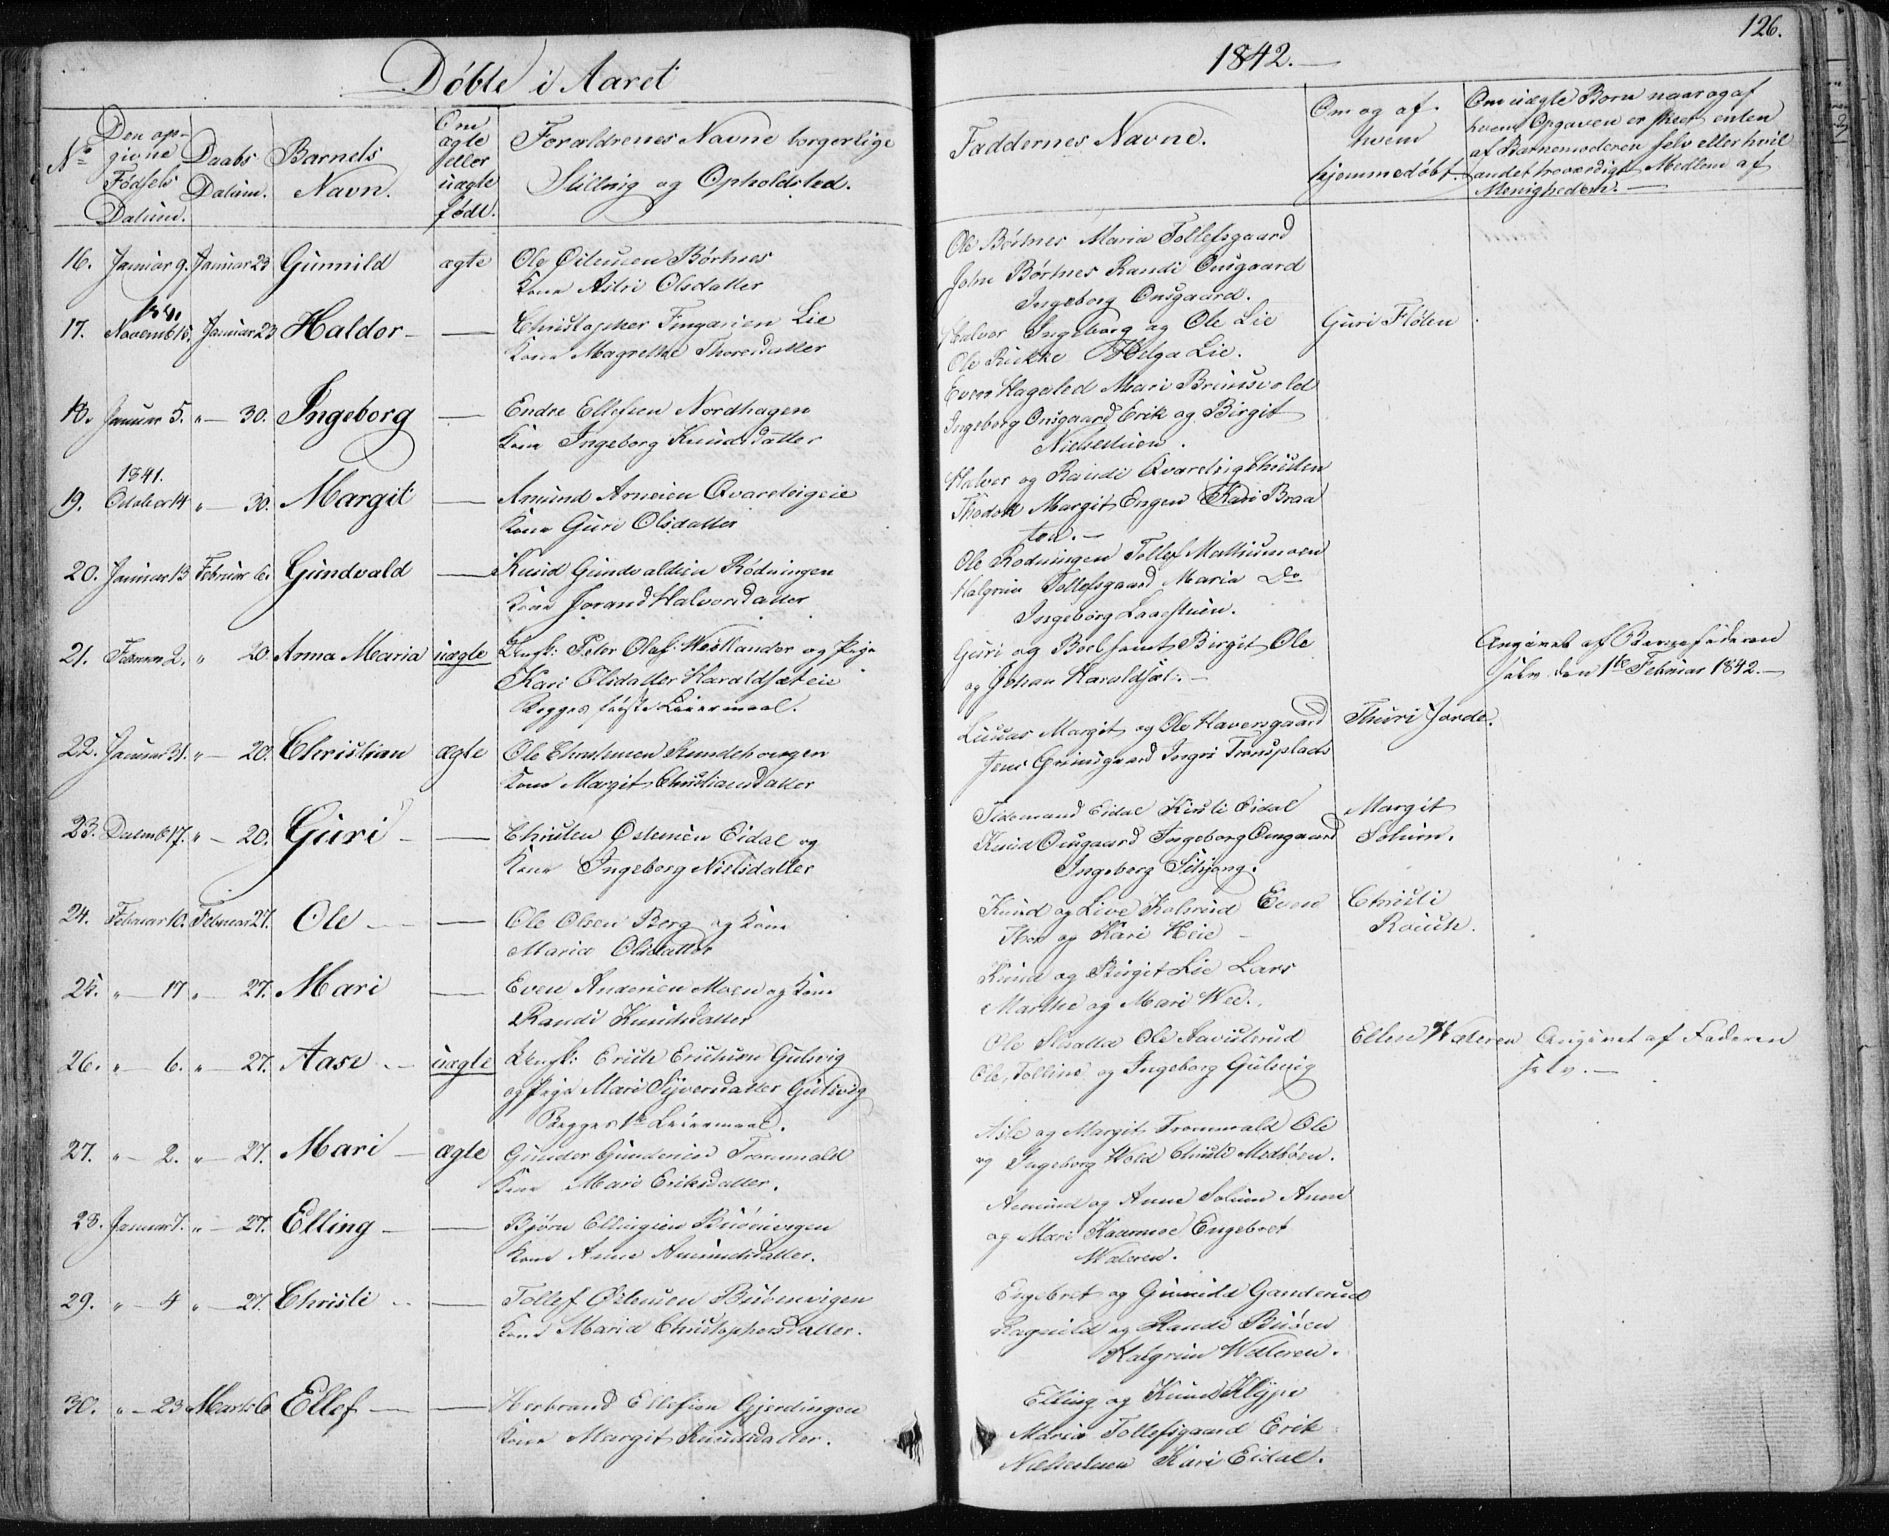 126.
Døbte i Aaret 1842.
No
Den op-
givne
Fødsels
Datum.
Daabs
Datum.
Barnets
Navn.
Om
ægte
eller
uægte
født.
Forældrenes Navne borgerlige
Stilling og Opholdsted.
Faddernes Navne.
Om og af
hvem
hjemmedøbt.
Om uægte Børn naar og af
hvem Opgaven er skeet enten
af Barnemoderen selv eller hvil
andet troværdigt Medlem af
Menigheden.
16. Januar 9. Januar 23 Gunnild ægte Ole Østensen Børtnes
Kone Astri Olsdatter
Ole Børtnes Maria Tollefsgaard
John Børtnes Randi Onsgaard
Ingeborg Onsgaard.
1841
17. Novemb 15. Januar 23 Haldor Christopher Lie
Kone Magrethe Thoresdatter
Halvor Ingeborg og Ole Lie
Ole Helga Lie.
Guri Fløten
18. Januar 5. " 30. Ingeborg Endre Ellefsen Nordhagen
Kone Ingeborg Knudsdatter
Even Hagaled Mari Brunsvold
Ingeborg Onsgaard Erik og Birgit
Nielsstuen.
1841.
19. October 14 " 30. Margit Amund Arnesen Qvarelvigeie
Kone Guri Olsdatter
Halvor og Randi Qvarelvig Christen
Margit Engen Kari Braa
ten.
20. Januar 13 Februar 6. Gundvald Knud Gundvaldsen Rodningen
Kone Jorand Halvorsdatter
Ole Rodningen Tollef
Halgrim Tollefsgaard Maria Do
Ingeborg
21. Februar 2. " 20 Anna Maria uægte Ungk: Peter Olaf: Westlander og Pige
Kari Olsdatter Haraldsæteie
Begges første Leiermaal.
Guri og Birgit Ole
og Johan Haraldsæt.
Angivet af Barnefaderen
selv den 1te Februar 1842.
22. Januar 31. " 20. Christian ægte Ole
Kone Margit Christiansdatter
Margit og Ole Haversgaard
Jens Grimsgaard Ingri Tronsplads
Thuri Jorde.
23. Decemb 17. " 20. Guri Christen Østensen Eidal og
Kone Ingeborg Nielsdatter
Tidemand Eidal Kirsti Eidal
Knud Onsgaard Ingeborg Onsgaard
Ingeborg
Margit
Solum.
24. Februar 10. Februar 27. Ole Ole Olsen Berg og Kone
Maria Olsdatter
Knud og Live Kolsrud Even
Thor og Kari Heie
Christi
25. " 17 " 27. Mari Even Andersen Moen og Kone
Randi Knudsdatter
Knud og Birgit Lie Lars
Marthe og Mari Wee.
26. " 6. " 27. Aase uægte Ungk: Erich Erichsen Gulsvig
og Pige Mari Syversdatter Gulsvig
Begges 1te Leiermaal.
Ole Ole Aavestrud
Ole, Tolline og Ingeborg Gulsvig
Ellen Wæteren Angivet af Faderen
selv.
27. " 2. " 27. Mari ægte Gunder Gundersen Trommald
Kone Mari Eriksdatter.
Asle og Margit Trommald Ole
og Ingeborg Wold Christi Medbøen.
28. Januar 7. " 27. Elling Bjørn Ellingsen
Kone Anne Amundsdatter.
Amund og Anne Solum Anne
og Mari Engebret
Wæteren.
29. " 4 " 27. Christi Tollef Østensen Buøenvigen
Kone Maria Christophersdatter.
Engebret og Gunild Ganderud
Ragnild og Randi Buøen
Halgrim Wæteren.
30. " 23 Marts 6 Ellef Herbrand Ellefsen Gjerdingen
Kone Margit Knudsdatter.
Elling og Knud Klype
Maria Tollefsgaard Erik
Kari Eidal.